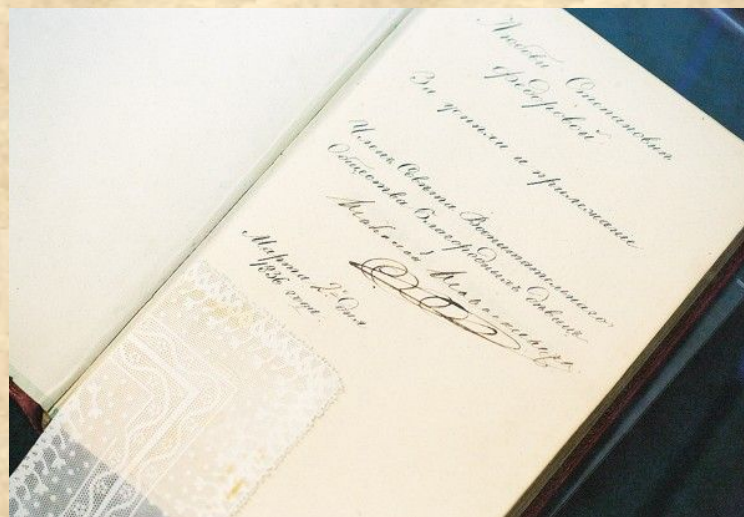 Любови Степановны
Федоровой
За успѣхи и прилежаніе
Членъ Совѣта Воспитательнаго
Общества Благородныхъ Девицъ
Марта 2 дня
1836 года.